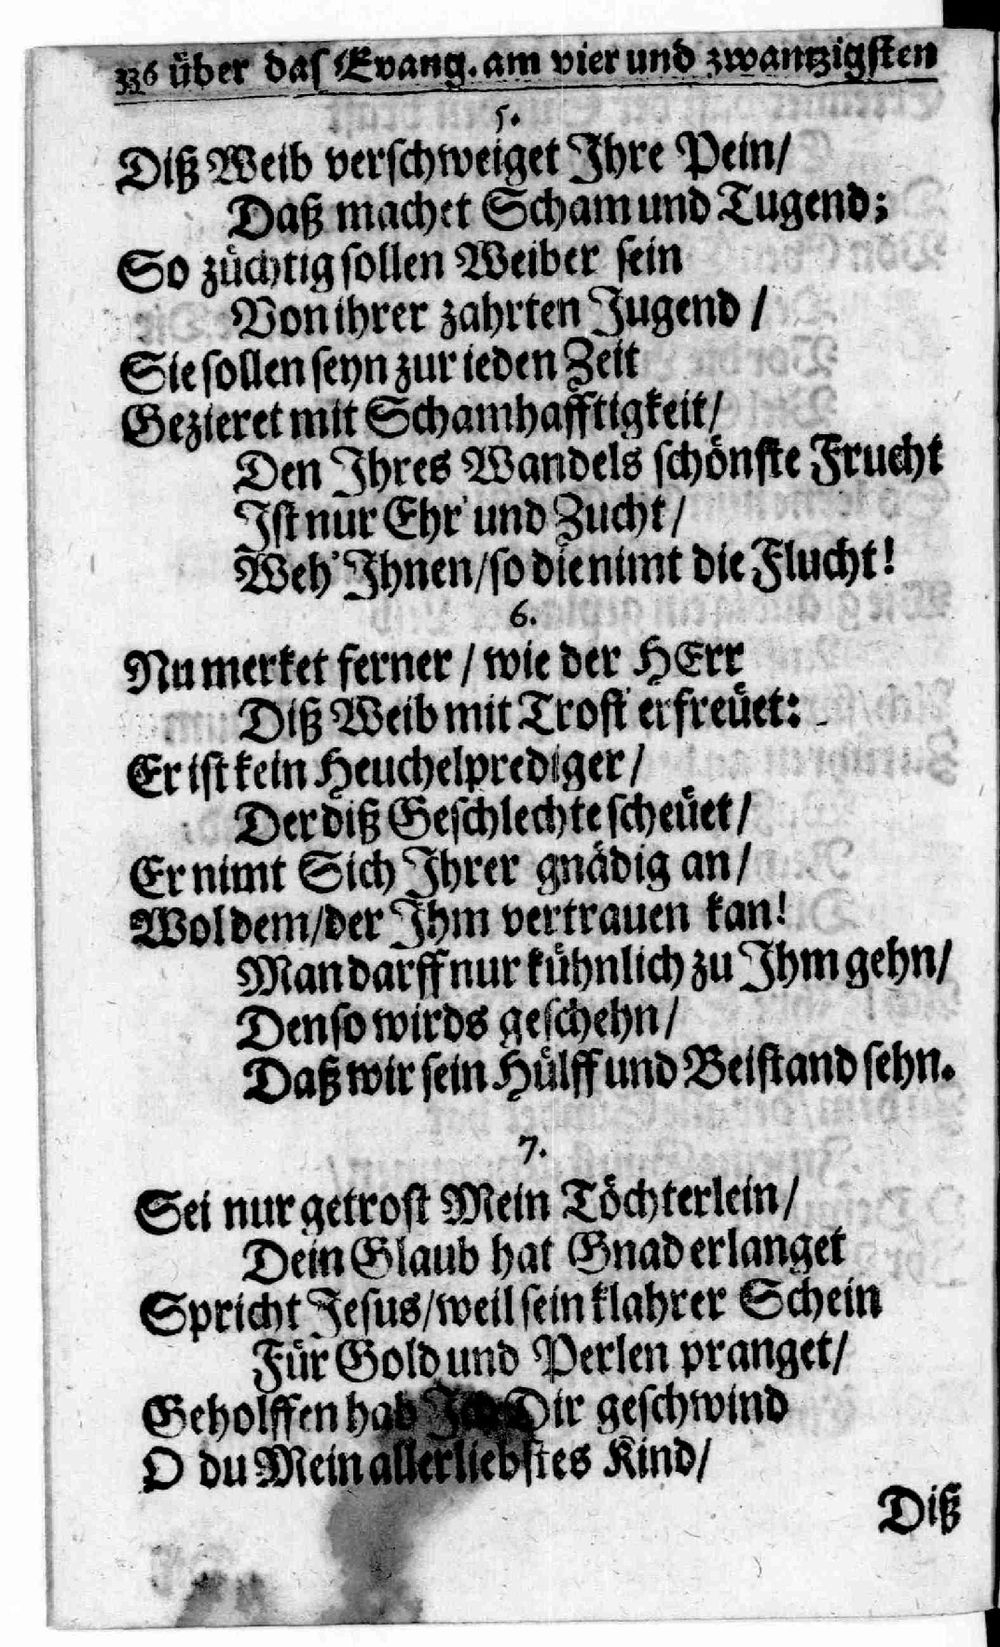 336 über das Evang. am vier und zwantzigsten
5.
Diß Weib verschweiget Ihre Pein/
Daß machet Scham und Tugend;
So züchtig sollen Weiber sein
Von ihrer zahrten Jugend/
Sie sollen seyn zur ieden Zeit
Gezieret mit Schamhafftigkeit/
Den Ihres Wandels schönste Frucht
Ist nur Ehr' und Zucht/
Weh' Ihnen/so die nimt die Flucht!
6.
Nu merket ferner/ wie der HErr
Diß Weib mit Trost' erfreüet:
Er ist kein Heuchelprediger/
Der diß Geschlechte scheüet/
Er nimt Sich Ihrer gnädig an/
Wol dem/der Ihm vertrauen kan!
Man darff nur kühnlich zu Ihm gehn/
Den so wirds geschehn/
Daß wir sein Hülff und Beistand sehn.
7.
Sei nur getrost Mein Töchterlein/
Dein Glaub hat Gnad erlanget
Spricht Jesus/weil sein klahrer Schein
Für Gold und Perlen pranget/
Geholffen hab Ich Dir geschwind
O du Mein allerliebstes Kind/
Diß